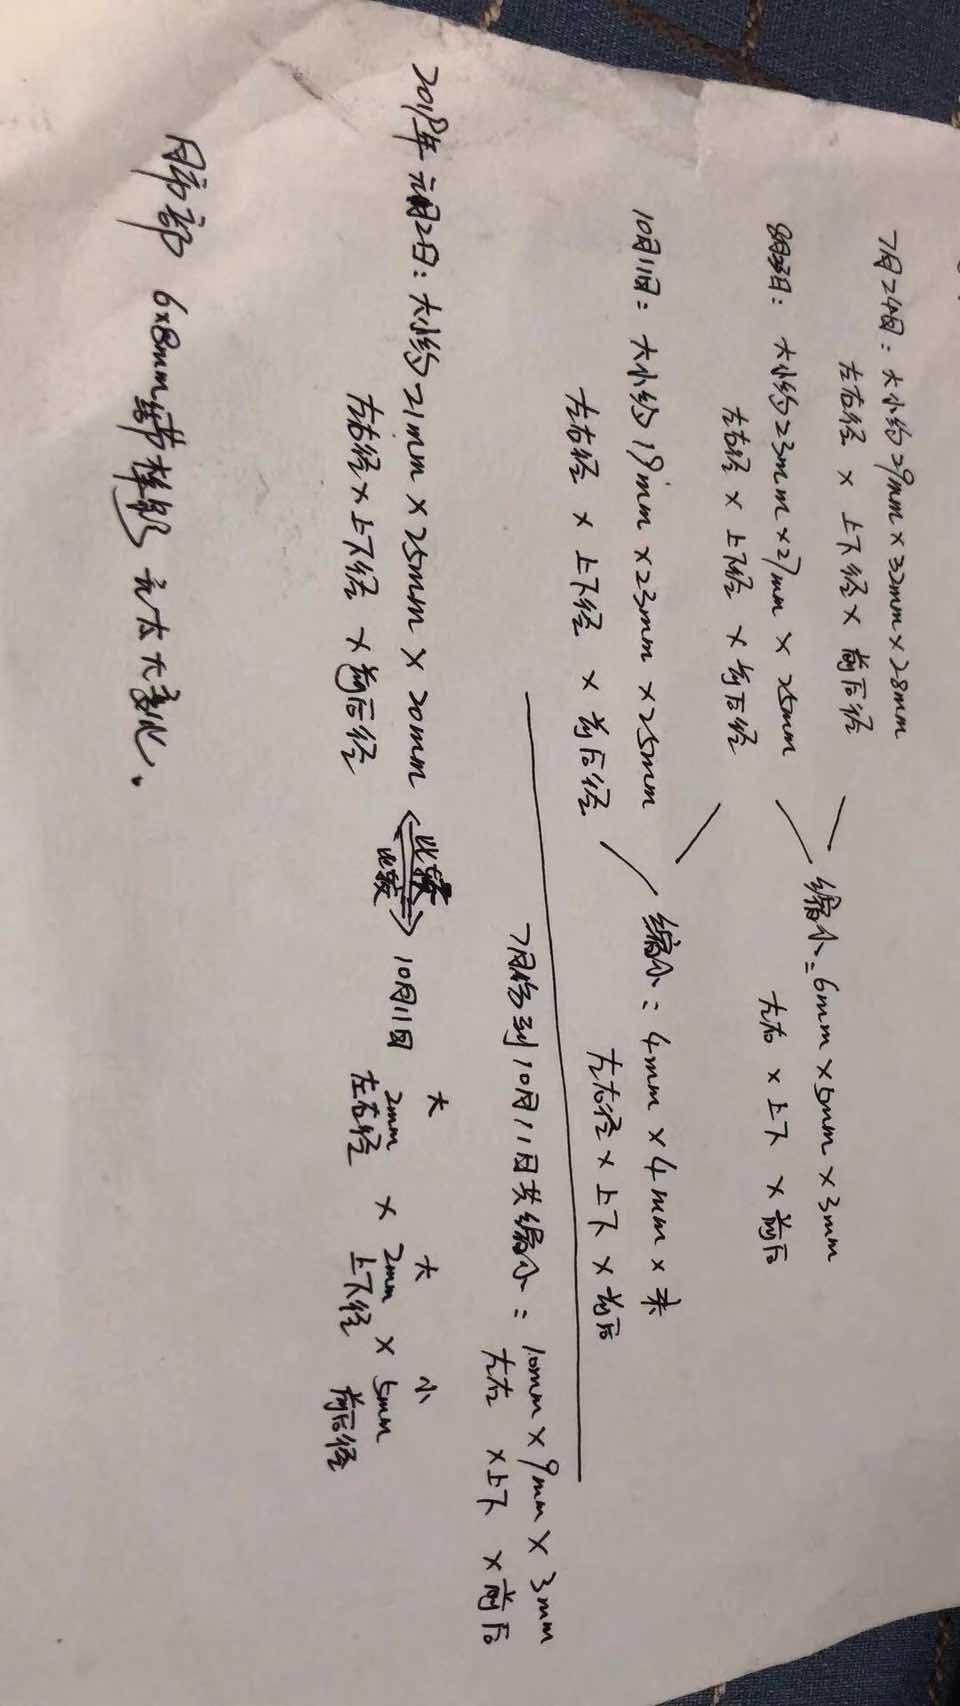 7月24日：大小约29mm×32mm×28mm
左右径 × 上下径 × 前后径
缩小=6mm×5mm×3mm
左右 × 上下 × 前后
大小约23mm×27mm × 25mm
左右径 × 上下径 × 前后径
10月11日：大小约19mm×23mm×25mm
左右径 × 上下径 × 前后径
缩小：4mm×4mm×未
左右径×上下×前后
7月份到10月11日共缩小：10mm×9mm×3mm
左右 ×上下 ×前后
2018年元月2日：大小约21mm×25mm×20mm
左右径×上下径 ×前后径
比较
比较
10月11日
大 大 小
2mm × 2mm × 5mm
左右径 上下径 前后径
肺部 6×8mm结节样影 无太大变化.